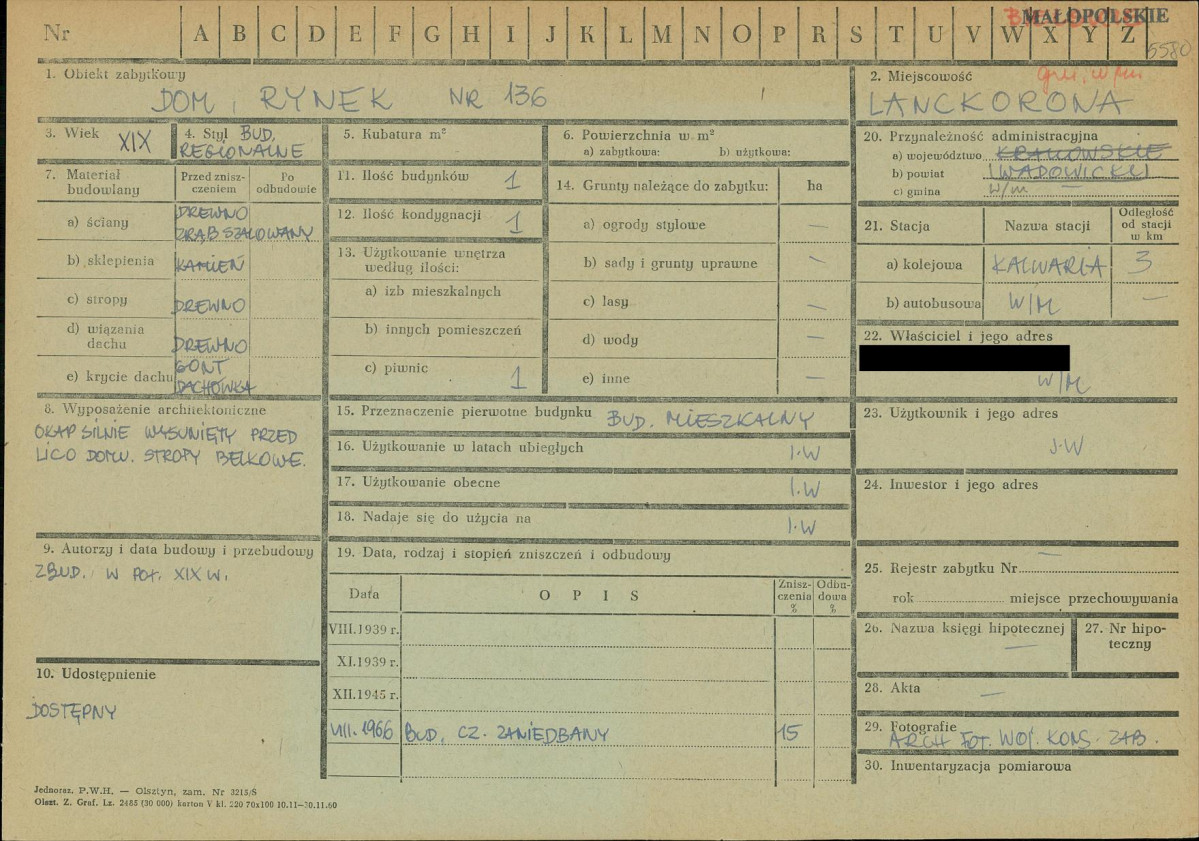 Nr A B C D E F G H I J K L M N O P R S T U V W X Y Z
MAŁOPOLSKIE
5580
1. Obiekt zabytkowy
DOM, RYNEK NR 136
2. Miejscowość
LANCKORONA
3. Wiek XIX
4. Styl BUD.
REGIONALNE
5. Kubatura m³
6. Powierzchnia w m²
a) zabytkowa: b) użytkowa:
20. Przynależność administracyjna
a) województwo KRAKOWSKIE
b) powiat WADOWICKI
c) gmina W/m —
7. Materiał
budowlany
Przed znisz-
czeniem
Po
odbudowie
a) ściany DREWNO
ZRĄB SZALOWANY
b) sklepienia KAMIEŃ
c) stropy DREWNO
d) wiązania
dachu DREWNO
e) krycie dachu GONT
DACHÓWKA
11. Ilość budynków 1
12. Ilość kondygnacji 1
13. Użytkowanie wnętrza
według ilości:
a) izb mieszkalnych
b) innych pomieszczeń
c) piwnic 1
14. Grunty należące do zabytku: ha
a) ogrody stylowe —
b) sady i grunty uprawne —
c) lasy —
d) wody —
e) inne —
21. Stacja Nazwa stacji
Odległość
od stacji
w km
a) kolejowa KALWARIA 3
b) autobusowa W/M —
22. Właściciel i jego adres
W/M
8. Wyposażenie architektoniczne
OKAP SILNIE WYSUNIĘTY PRZED
LICO DOMU. STROPY BELKOWE.
15. Przeznaczenie pierwotne budynku BUD. MIESZKALNY
16. Użytkowanie w latach ubiegłych J.W
17. Użytkowanie obecne J.W
18. Nadaje się do użycia na J.W
23. Użytkownik i jego adres
J.W
24. Inwestor i jego adres
—
9. Autorzy i data budowy i przebudowy
ZBUD. W POŁ. XIX W.
19. Data, rodzaj i stopień zniszczeń i odbudowy
Data OPIS
Znisz-
czenia
%
Odbu-
dowa
%
VIII.1939 r.
XI.1939 r.
XII.1945 r.
VIII.1966 BUD. CZ. ZANIEDBANY 15
25. Rejestr zabytku Nr
rok miejsce przechowywania
26. Nazwa księgi hipotecznej
—
27. Nr hipo-
teczny
28. Akta —
29. Fotografie
ARCH FOT. WOJ. KONS. ZAB.
30. Inwentaryzacja pomiarowa
10. Udostępnienie
DOSTĘPNY
Jednoraz. P.W.H. — Olsztyn, zam. Nr 3215/S
Olszt. Z. Graf. Lz. 2485 (30 000) karton V kl. 220 70x100 10.11—30.11.60